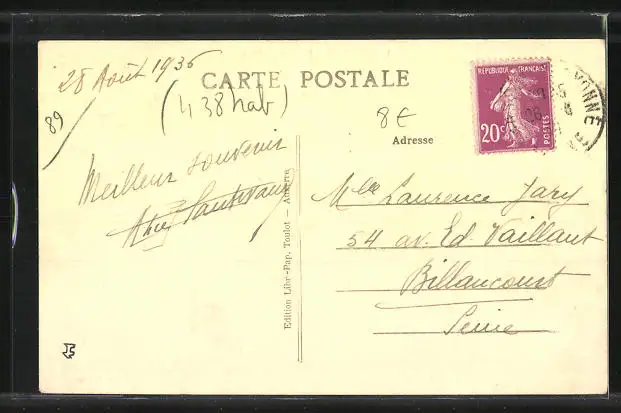 28 Août 1936
CARTE POSTALE
(438 hab)
89
8€
Adresse
RÉPUBLIQUE FRANÇAISE
20c
POSTES
YONNE
Meilleur souvenir
Edition Libr-Pap. Toulot — Auxerre
Mlle Laurence Jary
54 av. Ed. Vaillant
Billancourt
Seine